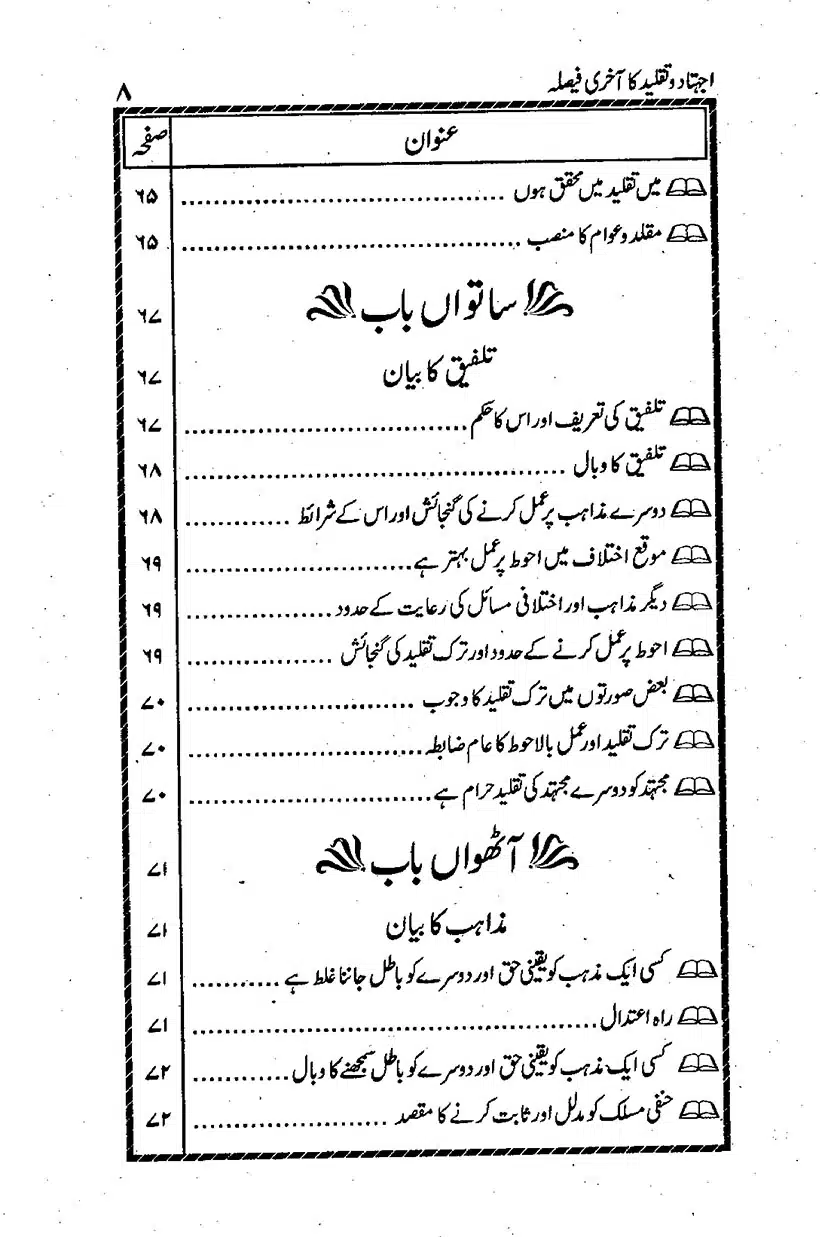 اجتہاد و تقلید کا آخری فیصلہ ۸
عنوان صفحہ
میں تقلید میں محقق ہوں ........ ۶۵
مقلد و عوام کا منصب ........ ۶۵
ساتواں باب ۶۷
تلفیق کا بیان ۶۷
تلفیق کی تعریف اور اس کا حکم ........ ۶۷
تلفیق کا وبال ........ ۶۸
دوسرے مذاہب پر عمل کرنے کی گنجائش اور اس کے شرائط ........ ۶۸
موقع اختلاف میں احوط پر عمل بہتر ہے ........ ۶۹
دیگر مذاہب اور اختلافی مسائل کی رعایت کے حدود ........ ۶۹
احوط پر عمل کرنے کے حدود اور ترک تقلید کی گنجائش ........ ۶۹
بعض صورتوں میں ترک تقلید کا وجوب ........ ۷۰
ترک تقلید اور عمل بالاحوط کا عام ضابطہ ........ ۷۰
مجتہد کو دوسرے مجتہد کی تقلید حرام ہے ........ ۷۰
آٹھواں باب ۷۱
مذاہب کا بیان ۷۱
کسی ایک مذہب کو یقینی حق اور دوسرے کو باطل جاننا غلط ہے ........ ۷۱
راہ اعتدال ........ ۷۱
کسی ایک مذہب کو یقینی حق اور دوسرے کو باطل سمجھنے کا وبال ........ ۷۲
حنفی مسلک کو مدلل اور ثابت کرنے کا مقصد ........ ۷۲